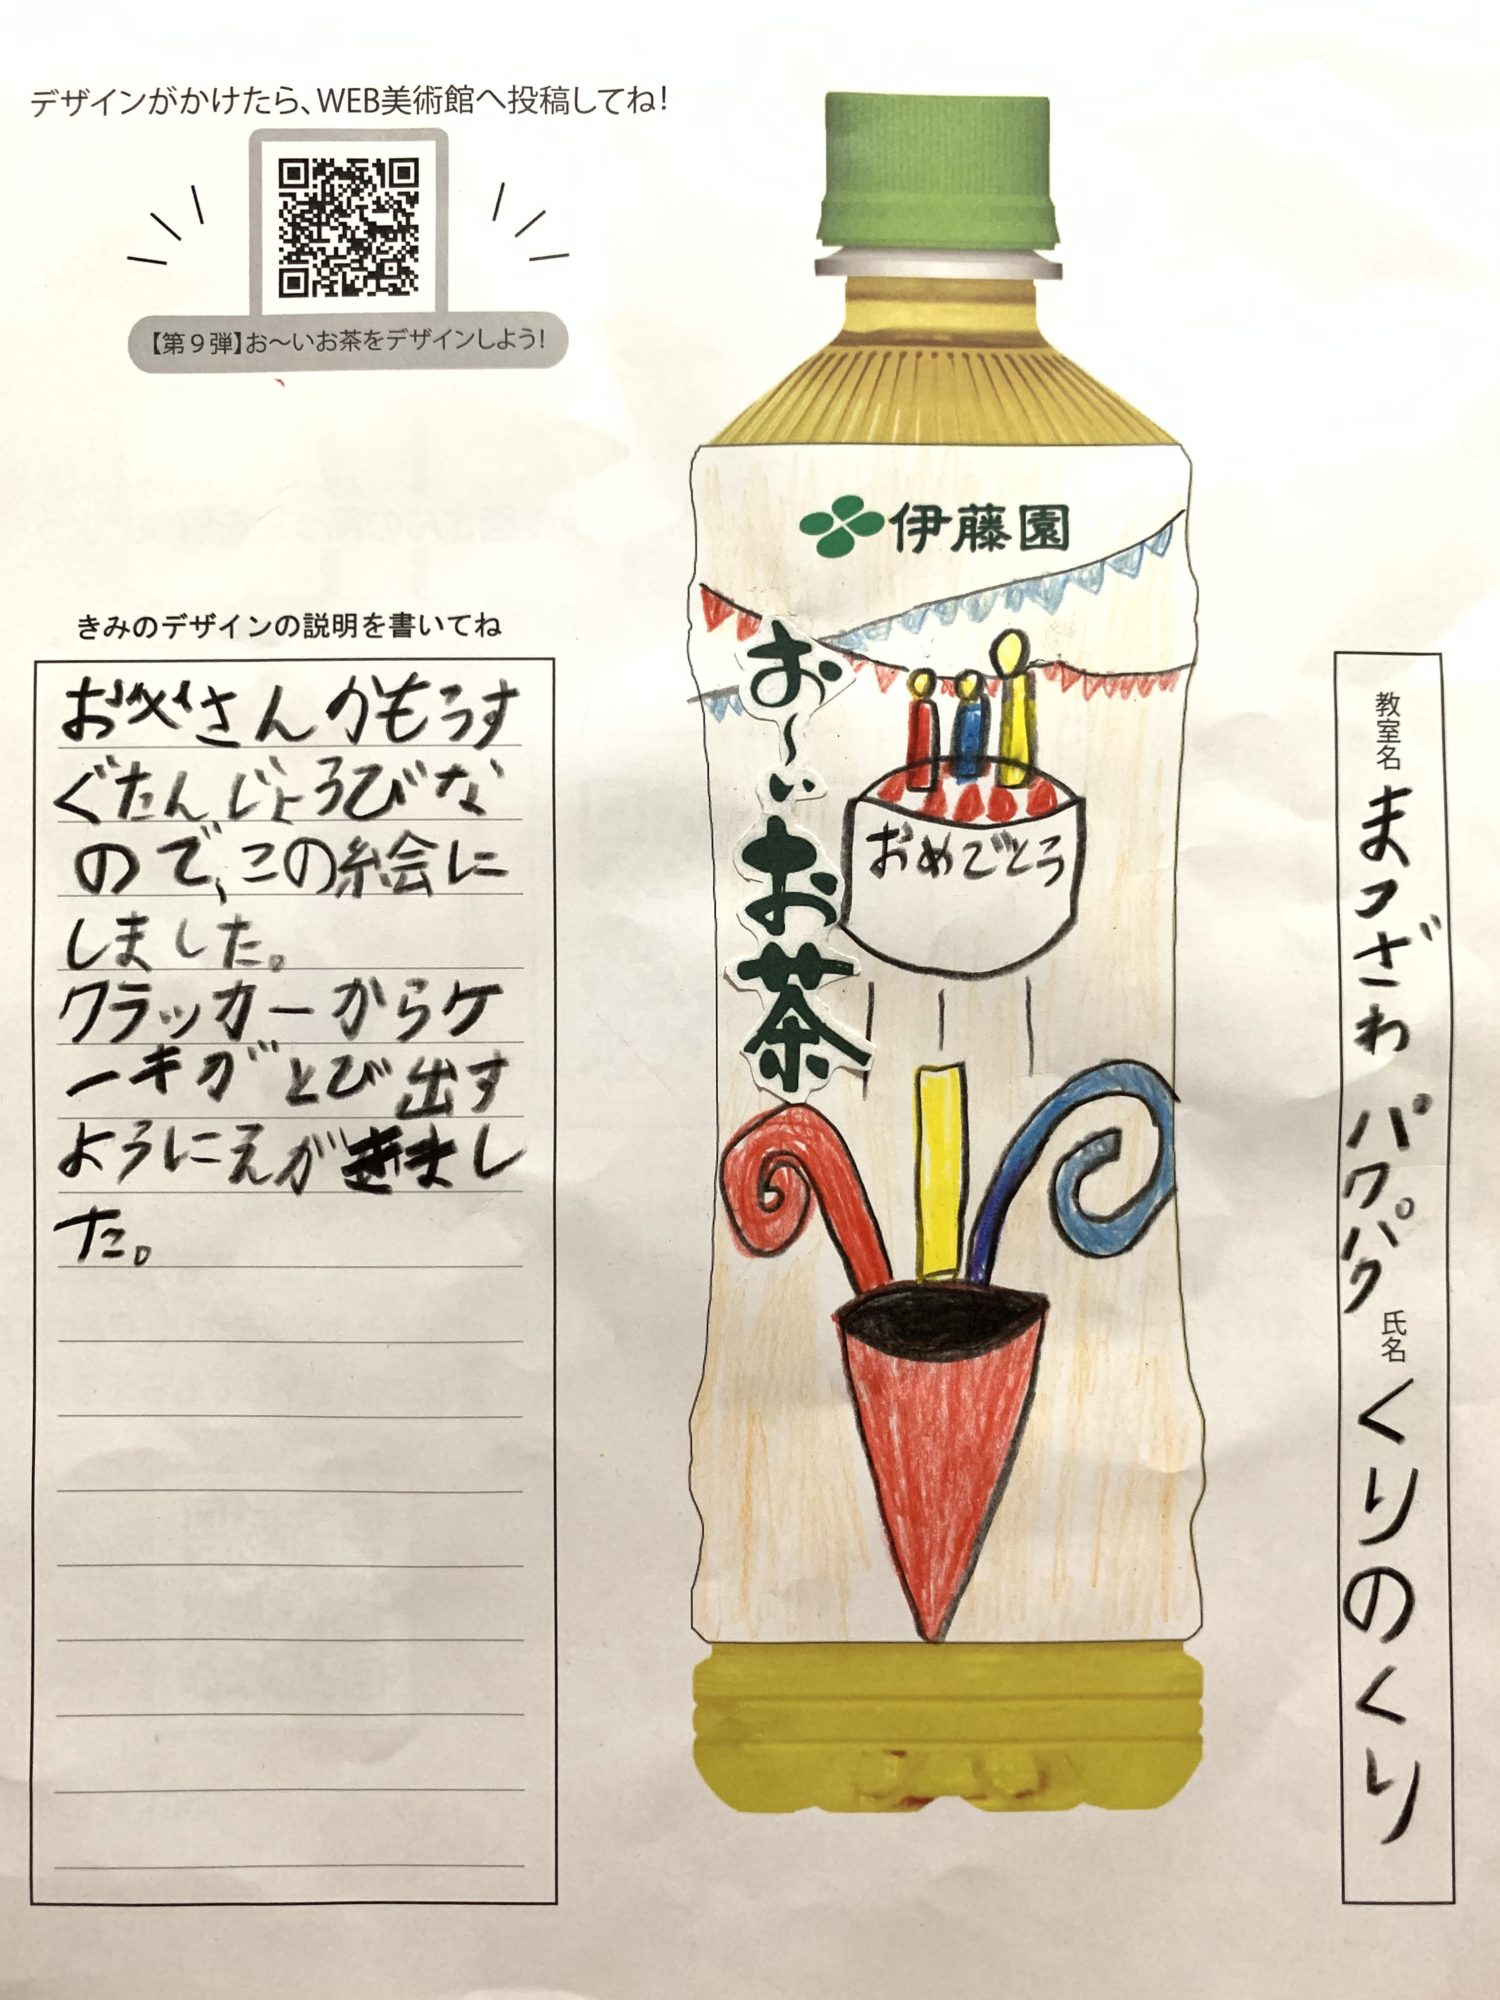 デザインがかけたら、WEB美術館へ投稿してね!
【第9弾】お〜いお茶をデザインしよう!
きみのデザインの説明を書いてね
お父さんがもうす
ぐたんじょうびな
ので、この絵に
しました。
クラッカーからケ
ーキがとび出す
ようにえがきまし
た。
伊藤園
お〜いお茶
おめでとう
教室名 まつざわ パクパク
氏名 くりのくり